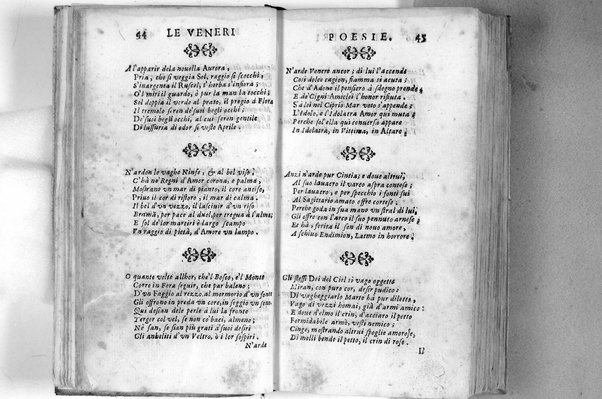 44 LE VENERI
A l'apparir dela nouella Aurora,
Pria, che si veggia Sol, raggio si scocchi,
S'inargenta il Ruscel, l'herba s'infiora;
O l'miri il guardo, ò por la man la tocchi
Sol doppia il verde al prato, il pregio à Flora
Il tremolo seren de' suoi begli occhi;
De' suoi begli occhi, al cui seren gentile
Di lussuria di odor si veste Aprile.
N'ardon le vaghe Ninfe, & al bel viso,
C'hà ne' Regni d'Amor corona, e palma,
Mostrano vn mar di pianto, il core anciso,
Priuo il cor di ristoro, il mar di calma,
Il bel d'vn vezzo, il lasciuir d'vn riso
Bramã, per pace al duol, per tregua à l'alma;
E sol de' lor martiri è largo stampo
Vn raggio di pietà, d'Amore vn lampo.
O quante volte allhor, che'l Bosco, e'l Monte
Corre in Fera seguir, che par baleno;
D'vn Faggio al rezzo, al mormorio d'vn fonte
Gli offrono in preda vn core, in seggio vn seno
Qui desian dele perle à lui la fronte
Terger col vel, se non co' baci, almeno;
Nè san, se sian più grati à' suoi desiri
Gli anheliti d'vn Veltro, ò i lor sospiri.
N'arde
POESIE. 45
N'arde Venere ancor; di lui l'accende
Così dolce cagion, fiamma sì acuta;
Che d'Adone il pensiero à sdegno prende
E de' Cigni Amiclei l'honor rifiuta.
S'à lei nel Ciprio Mar voto s'appende;
L'Idolo, e l'Idolatra Amor qui muta;
Perche sol'ella quì conuersa appare
In Idolatra, in Vittima, in Altare.
Anzi n'arde pur Cintia; e doue altrui,
Al suo lauacro il varco aspra contese;
Per lauacro, e per specchio i fonti sui
Al Sagittario amato offre cortese;
Perche goda in sua mano vn stral di lui,
Gli offre con l'arco il suo pennuto arnese;
Et hà, ferita il sen di nouo amore,
A schiuo Endimion, Latmo in horrore.
Gli stessi Dei del Ciel sì vago oggetto
Miran, con pure cor, desir pudico;
Di vegheggiarlo Marte hà pur diletto,
Vago di vezzi homai, già d'armi amico:
E doue d'elmo il crin, d'acciaro il petto
Formidabile armò, vesti nemico;
Cinge, mostrando altrui spoglie amorose,
Di molli bende il petto, il crin di rose.
Il